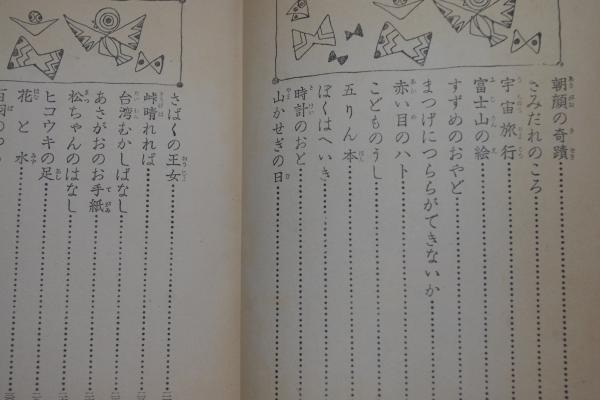 朝顔の奇蹟
さみだれのころ
宇宙旅行
富士山の絵
すずめのおやど
まつげにつららができないか
赤い目のハト
こどものうし
五りん本
ぼくはへいき
時計のおと
山かせぎの日
さばくの王女
峠晴れれば
台湾むかしばなし
あさがおのお手紙
松ちゃんのはなし
ヒコウキの足
花と水